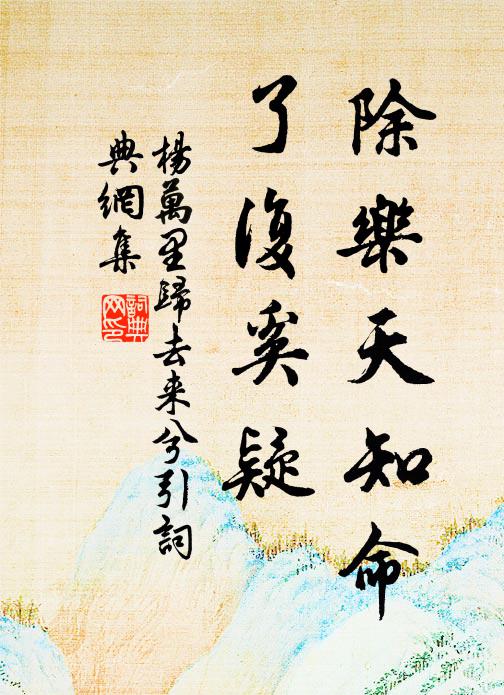 除樂天知命
了復奚疑
楊萬里歸去来兮引詞
典網集
詞典網印